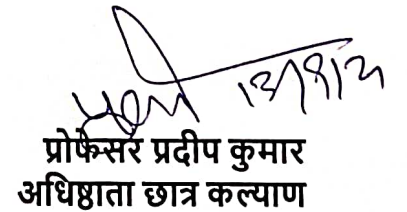 13/9/21
प्रोफेसर प्रदीप कुमार
अधिष्ठाता छात्र कल्याण